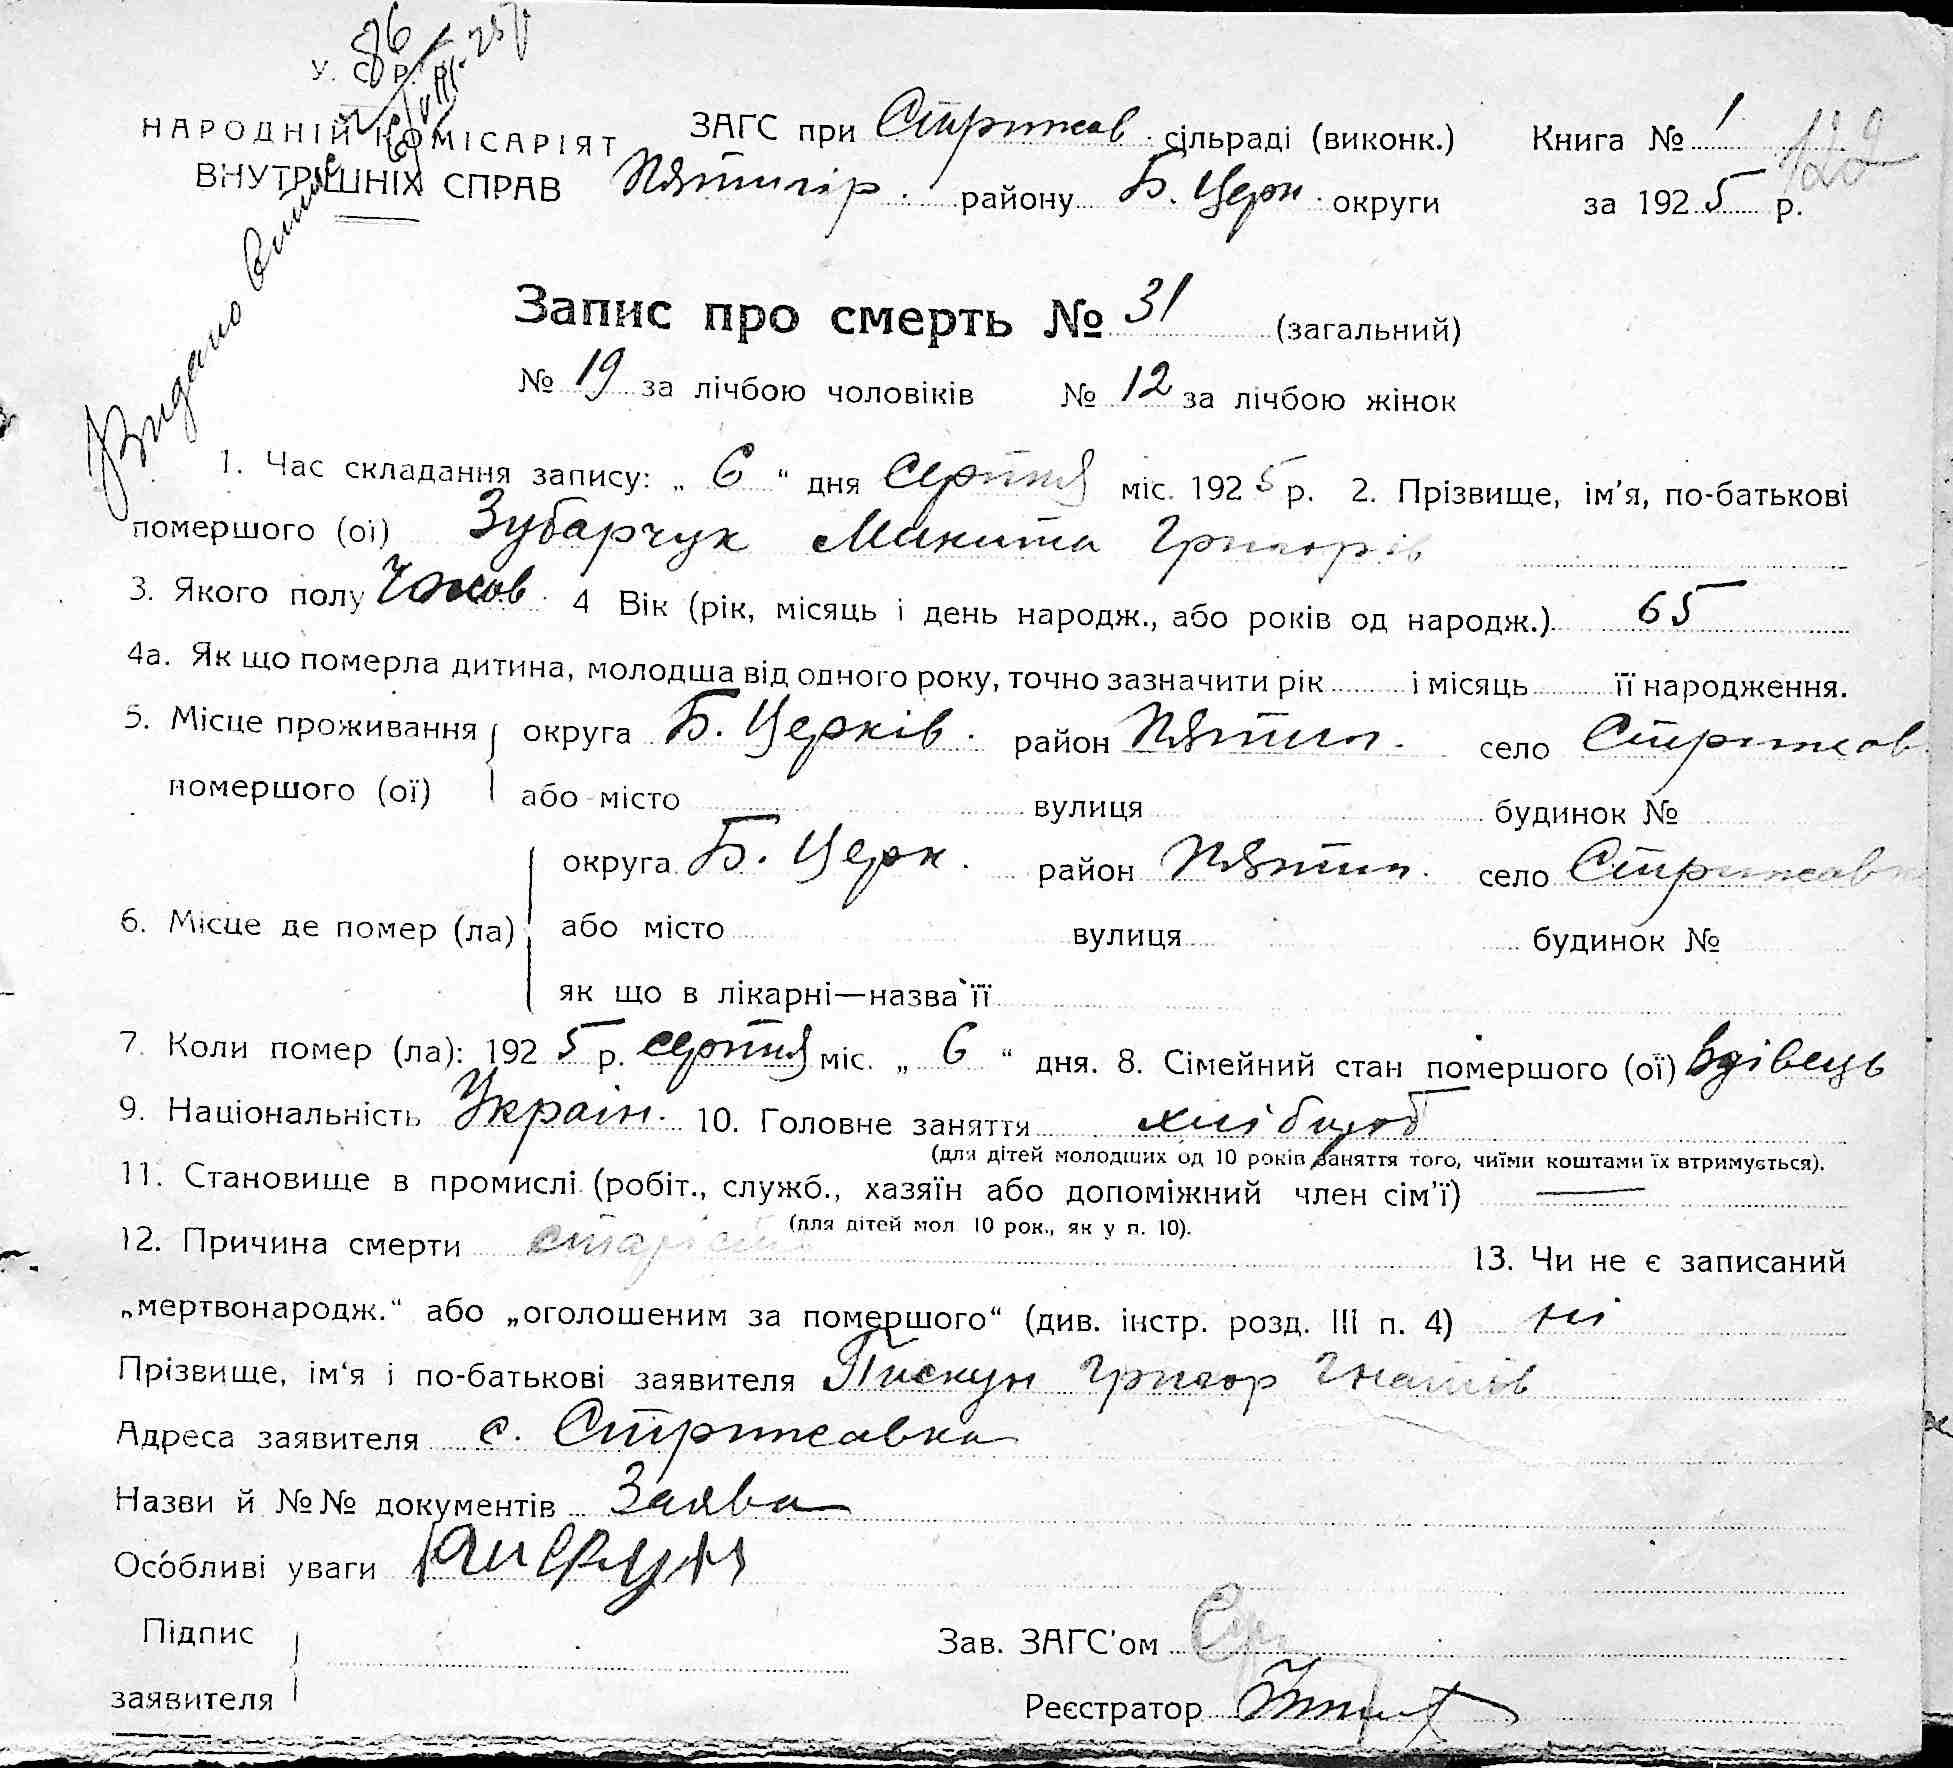 У. С. Р. Р.
НАРОДНІЙ КОМІСАРІЯТ
ВНУТРІШНІХ СПРАВ
86
Видано
ЗАГС при Стрижав. сільраді (виконк.) Книга № 1
122
Пятигір. району Б. Церк. округи за 1925 р.
Запис про смерть № 31 (загальний)
№ 19 за лічбою чоловіків № 12 за лічбою жінок
1. Час складання запису: „ 6 “ дня серпня міс. 1925 р. 2. Прізвище, ім’я, по-батькові
помершого (ої) Зубарчук Микита Григорів
3. Якого полу Чолов. 4 Вік (рік, місяць і день народж., або років од народж.) 65
4а. Як що померла дитина, молодша від одного року, точно зазначити рік і місяць її народження.
5. Місце проживання округа Б. Церків. район Пятиг. село Стрижав
помершого (ої) або місто вулиця будинок №
округа Б. Церк. район Пятиг. село Стрижавк
6. Місце де помер (ла) або місто вулиця будинок №
як що в лікарні—назва її
7. Коли помер (ла): 1925 р. серпня міс. „ 6 “ дня. 8. Сімейний стан помершого (ої) вдівець
9. Національність Україн. 10. Головне заняття хлібороб
(для дітей молодших од 10 років заняття того, чиїми коштами їх втримується).
11. Становище в промислі (робіт., служб., хазяїн або допоміжний член сім’ї) —
(для дітей мол 10 рок., як у п. 10).
12. Причина смерти старість 13. Чи не є записаний
„мертвонародж.“ або „оголошеним за помершого“ (див. інстр. розд. III п. 4) ні
Прізвище, ім‘я і по-батькові заявителя Пискун Григор Гнатів
Адреса заявителя с. Стрижавка
Назви й №№ документів Заява
Особливі уваги Пискун
Підпис
заявителя
Зав. ЗАГС’ом
Реєстратор